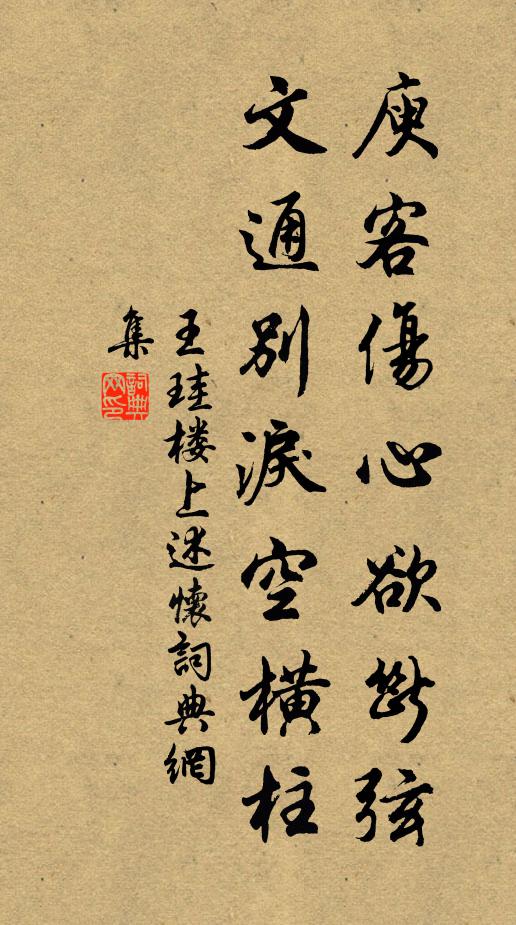 庾客傷心欲斷弦
文通別淚空橫柱
王珪楼上述懷詞典網
集
詞典網印